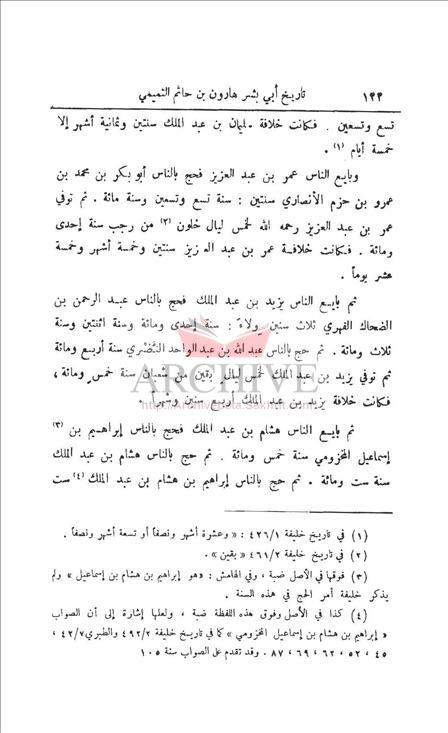 ١٣٣ تاريخ أبي بشر هارون بن حاتم التميمي
تسع وتسعين . فكانت خلافة سليمان بن عبد الملك سنتين وثمانية أشهر إلا
خمسة أيام (١) .
وبايع الناس عمر بن عبد العزيز فحج بالناس أبو بكر بن محمد بن
عمرو بن حزم الأنصاري سنتين : سنة تسع وتسعين وسنة مائة . ثم توفي
عمر بن عبد العزيز رحمه الله لخمس ليال خلون (٢) من رجب سنة إحدى
ومائة . فكانت خلافة عمر بن عبد العزيز سنتين وخمسة أشهر وخمسة
عشر يوماً .
ثم بايع الناس يزيد بن عبد الملك فحج بالناس عبد الرحمن بن
الضحاك الفهري ثلاث سنين ولاءً : سنة إحدى ومائة وسنة اثنتين وسنة
ثلاث ومائة . ثم حج بالناس عبد الله بن عبد الواحد النَّضْري سنة أربع ومائة
ثم توفي يزيد بن عبد الملك لخمس ليال بقين من شعبان سنة خمس ومائة ،
فكانت خلافة يزيد بن عبد الملك أربع سنين وشهراً .
ARCHIVE
http://Archivebeta.Sakhrit.com
ثم بايع الناس هشام بن عبد الملك فحج بالناس إبراهيم بن (٣)
إسماعيل المخزومي سنة خمس ومائة . ثم حج بالناس هشام بن عبد الملك
سنة ست ومائة . ثم حج بالناس إبراهيم بن هشام بن عبد الملك (٤) ست
(١) في تاريخ خليفة ٤٢٦/١ : « وعشرة أشهر ونصفاً أو تسعة أشهر ونصفاً .
(٢) في تاريخ خليفة ٤٦١/٢ « بقين » .
(٣) فوقها في الأصل ضبة ، وفي الهامش : «هو إبراهيم بن هشام بن إسماعيل » ولم
يذكر خليفة أمر الحج في هذه السنة .
(٤) كذا في الأصل وفوق هذه اللفظة ضبة ، ولعلها إشارة إلى أن الصواب
« إبراهيم بن هشام بن إسماعيل المخزومي » كما في تاريخ خليفة ٤٩٢/٢ والطبري ٤٢/٧ ،
٤٥ ، ٥٢ ، ٦٢ ، ٦٩ ، ٨٧ . وقد تقدم على الصواب سنة ١٠٥